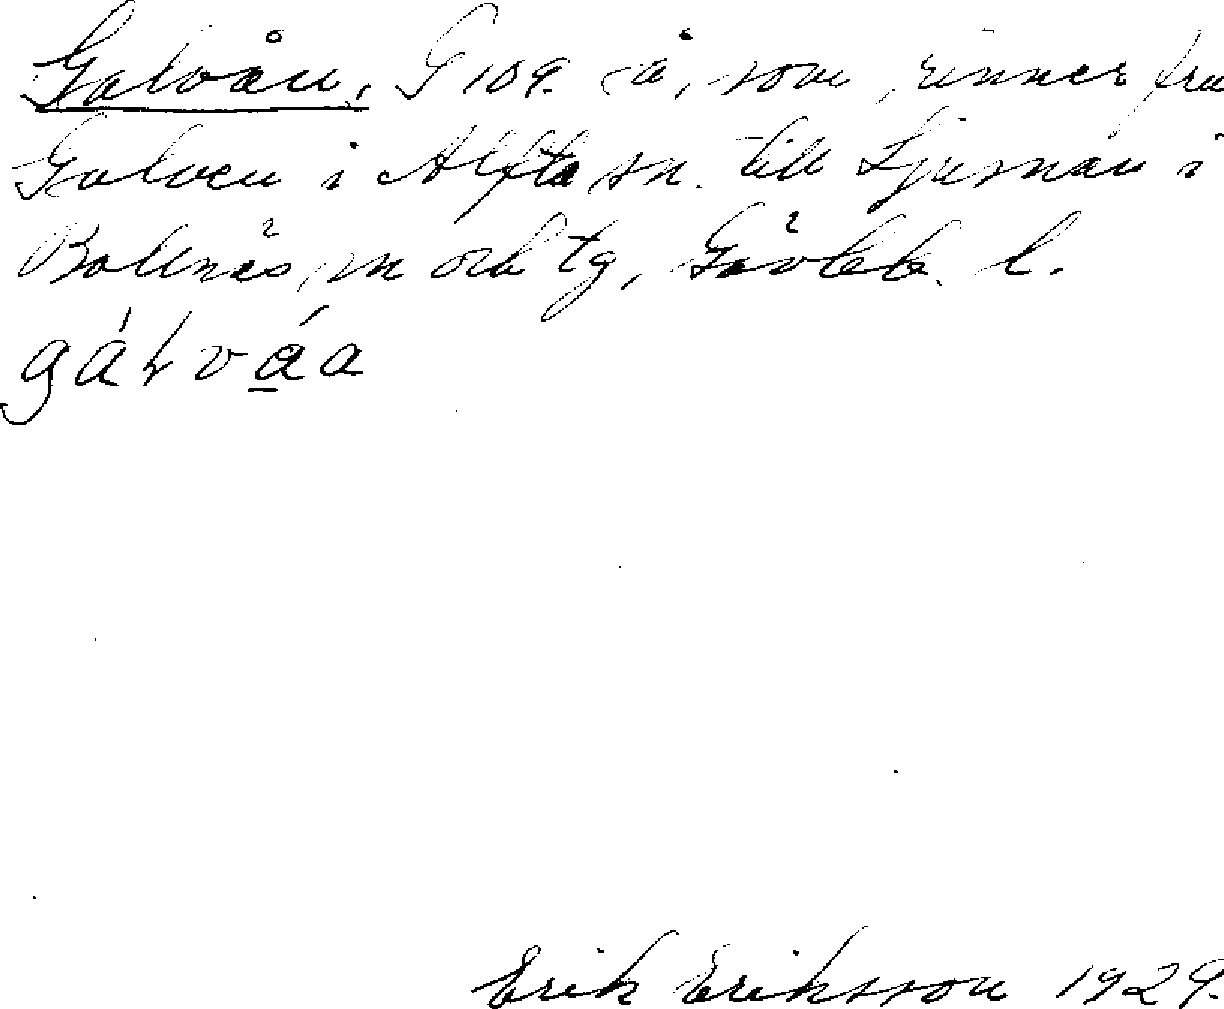 Galvån, G 109. å, som rinner från
Galven i Alfta sn. till Ljusnan i
Bollnäs sn och tg, Gävleb. l.
gálvåa
Erik Eriksson 1929.